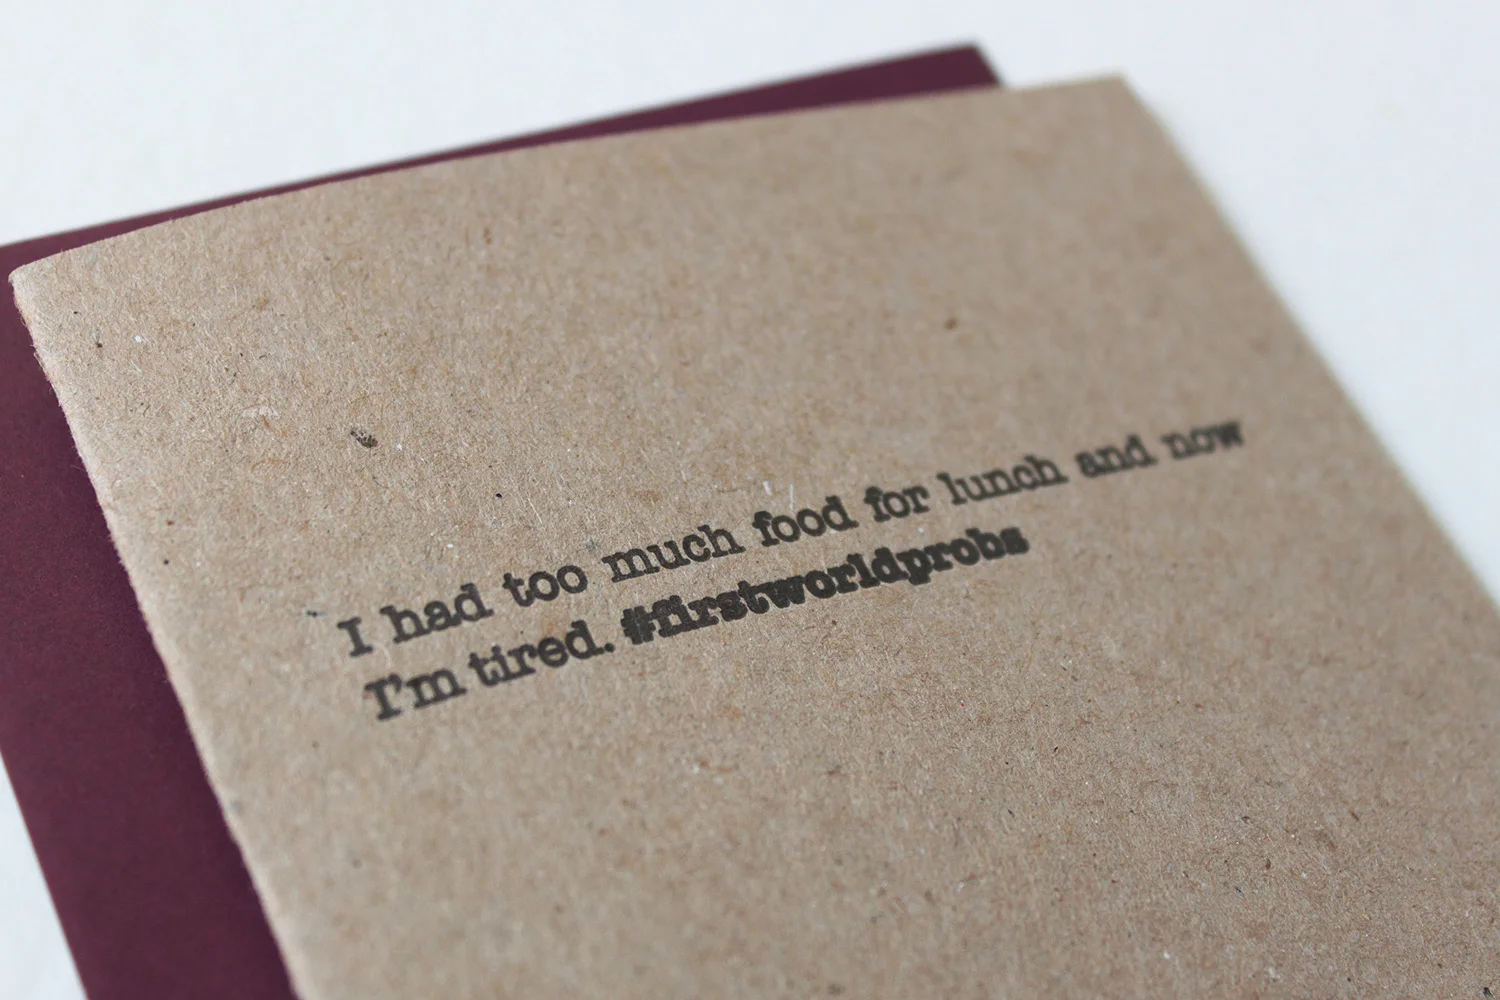 I had too much food for lunch and now
I'm tired. #firstworldprobs